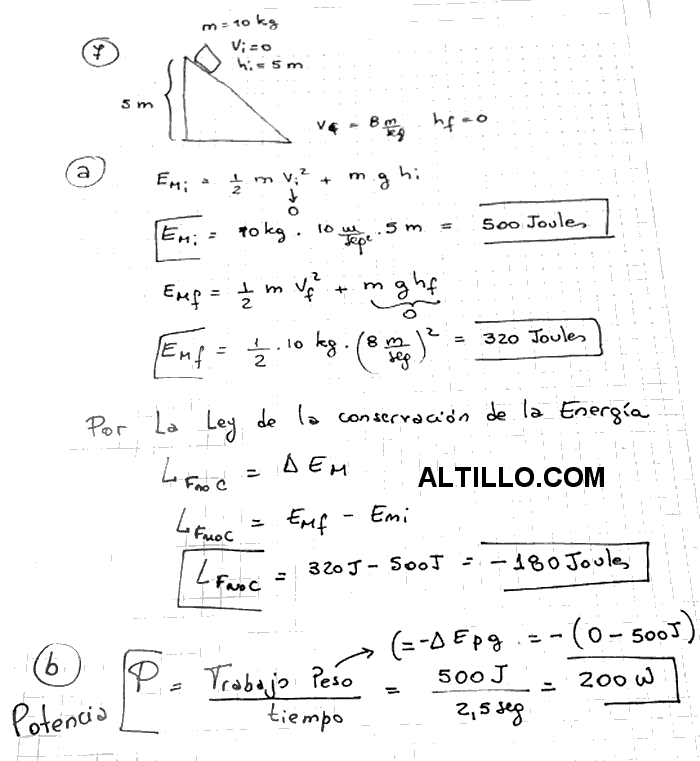 m = 10 kg
7
Vi = 0
hi = 5 m
5 m
Vf = 8 m/kg hf = 0
a
EMi = 1/2 m Vi² + m g hi
0
EMi = 10 kg . 10 m/seg² . 5 m = 500 Joules
EMf = 1/2 m Vf² + m g hf
0
EMf = 1/2 . 10 kg . (8 m/seg)² = 320 Joules
Por La Ley de la conservación de la Energía
LFnoC = Δ EM
ALTILLO.COM
LFnoC = EMf - Emi
LFnoC = 320 J - 500 J = -180 Joules
b
(= -Δ Epg = - (0 - 500J)
Potencia P = Trabajo Peso / tiempo = 500 J / 2,5 seg = 200 W